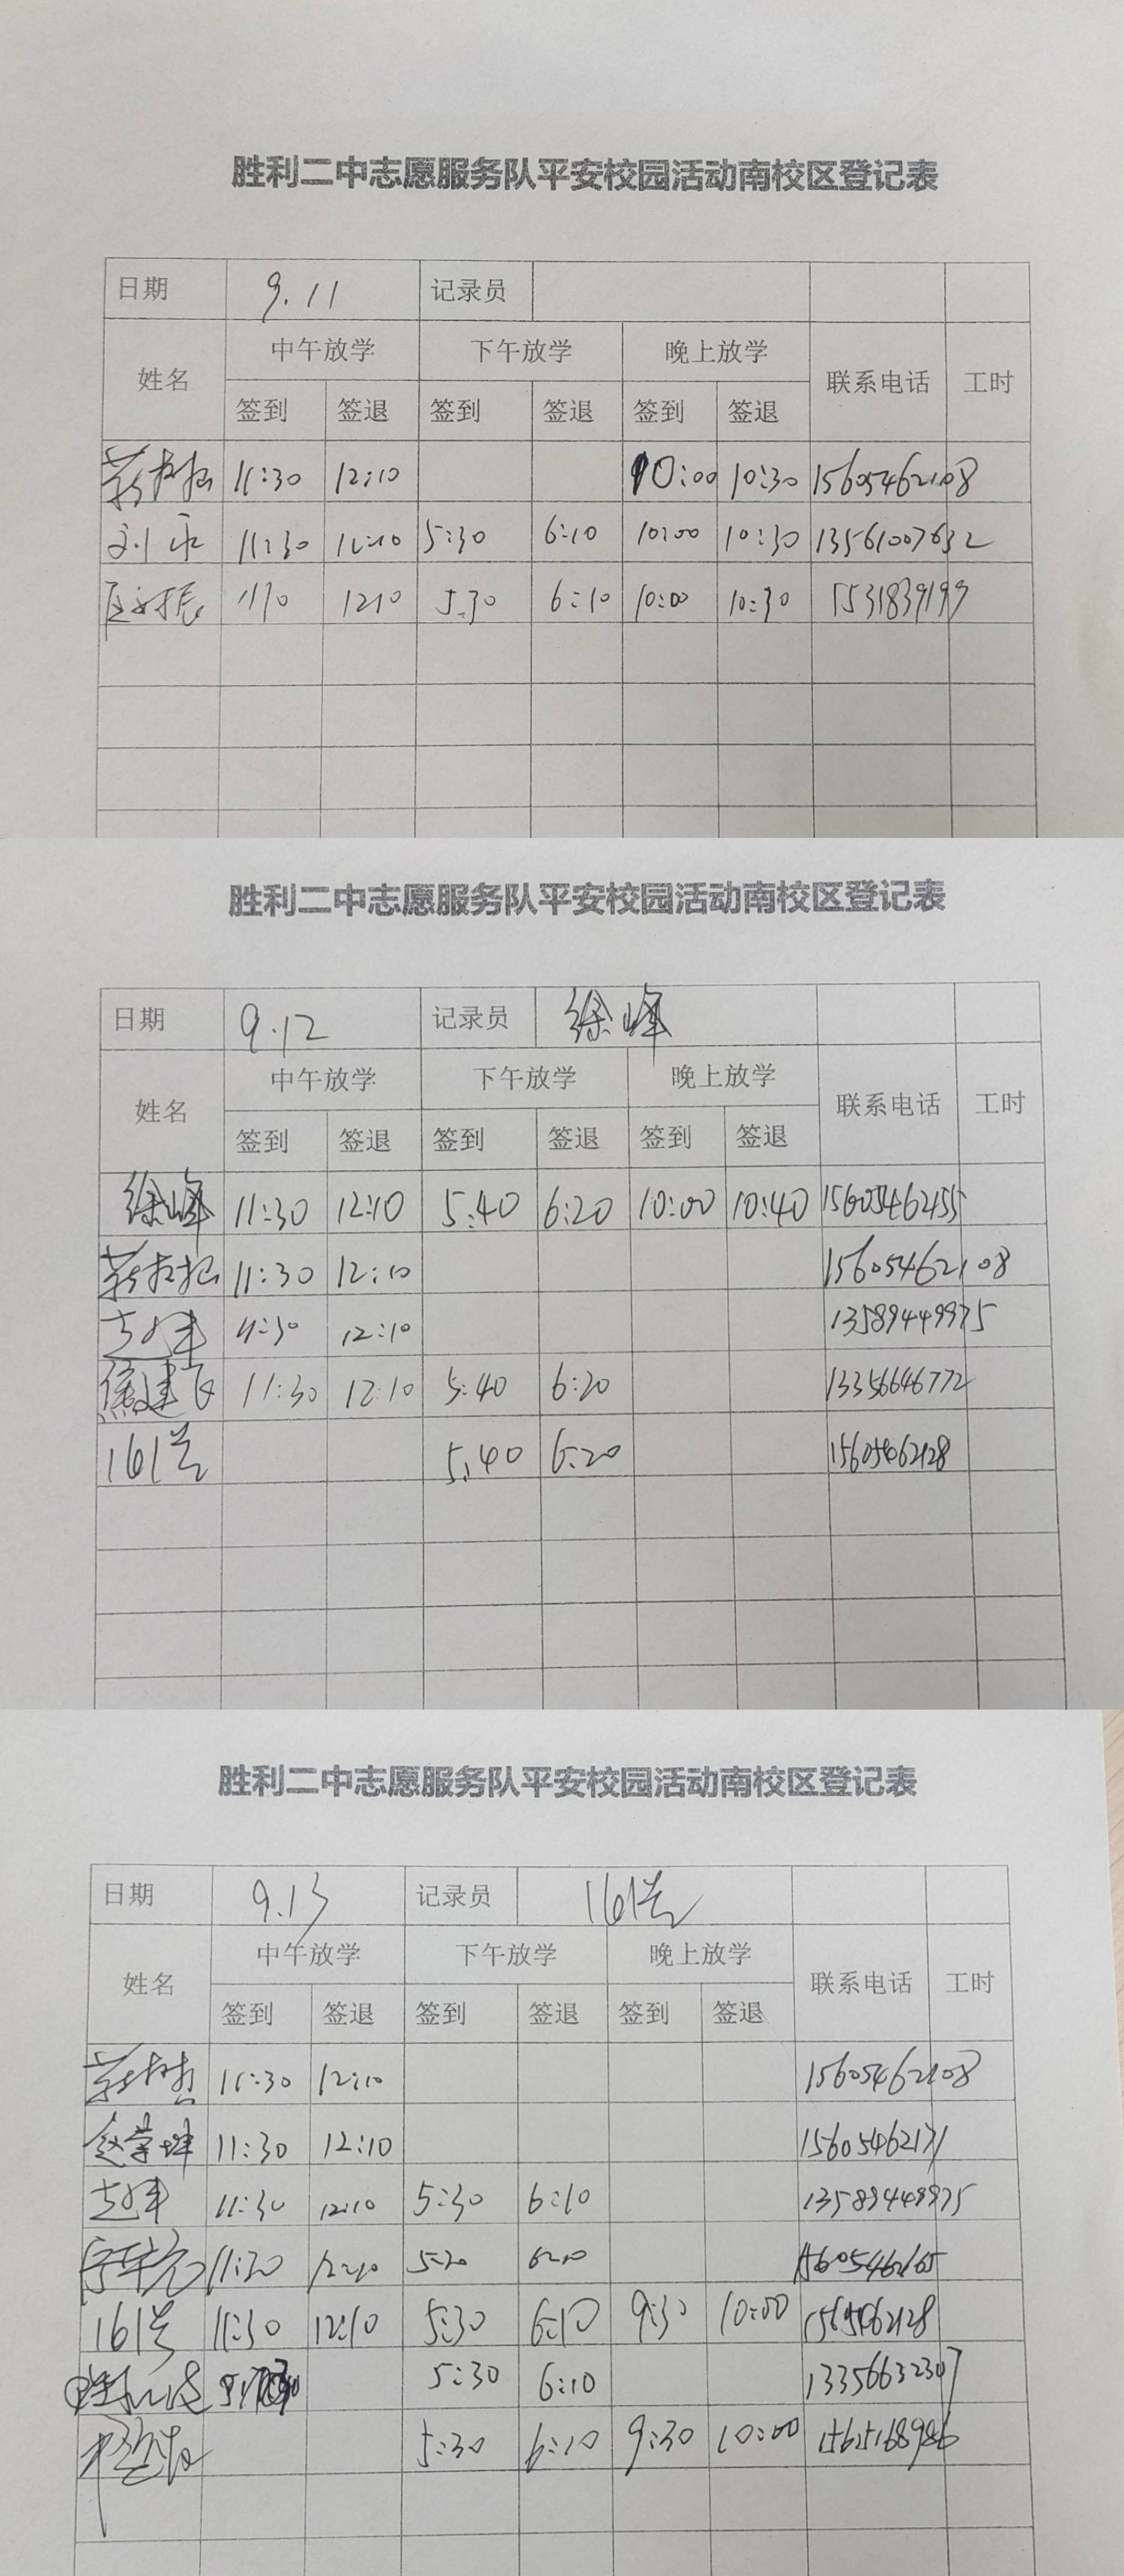 胜利二中志愿服务队平安校园活动南校区登记表
日期 9.11 记录员
中午放学 下午放学 晚上放学
姓名 联系电话 工时
签到 签退 签到 签退 签到 签退
11:30 12:10 10:00 10:30 15605462108
11:30 12:10 5:30 6:10 10:00 10:30 13561007632
1210 5.30 6:10 10:00 10:30
胜利二中志愿服务队平安校园活动南校区登记表
日期 9.12 记录员 徐峰
中午放学 下午放学 晚上放学
姓名 联系电话 工时
签到 签退 签到 签退 签到 签退
徐峰 11:30 12:10 5:40 6:20 10:00 10:40 15605462155
11:30 12:10 15605462108
11:30 12:10 13589449975
11:30 12:10 5:40 6:20 13356646772
5:40 6:20 15605462128
胜利二中志愿服务队平安校园活动南校区登记表
日期 9.13 记录员
中午放学 下午放学 晚上放学
姓名 联系电话 工时
签到 签退 签到 签退 签到 签退
11:30 12:10 15605462108
11:30 12:10 15605462171
11:30 12:10 5:30 6:10 13589449975
11:30 12:10 15605462165
11:30 12:10 5:30 6:10 9:30 10:00
5:30 6:10 13356632307
5:30 6:10 9:30 10:00 15625168986